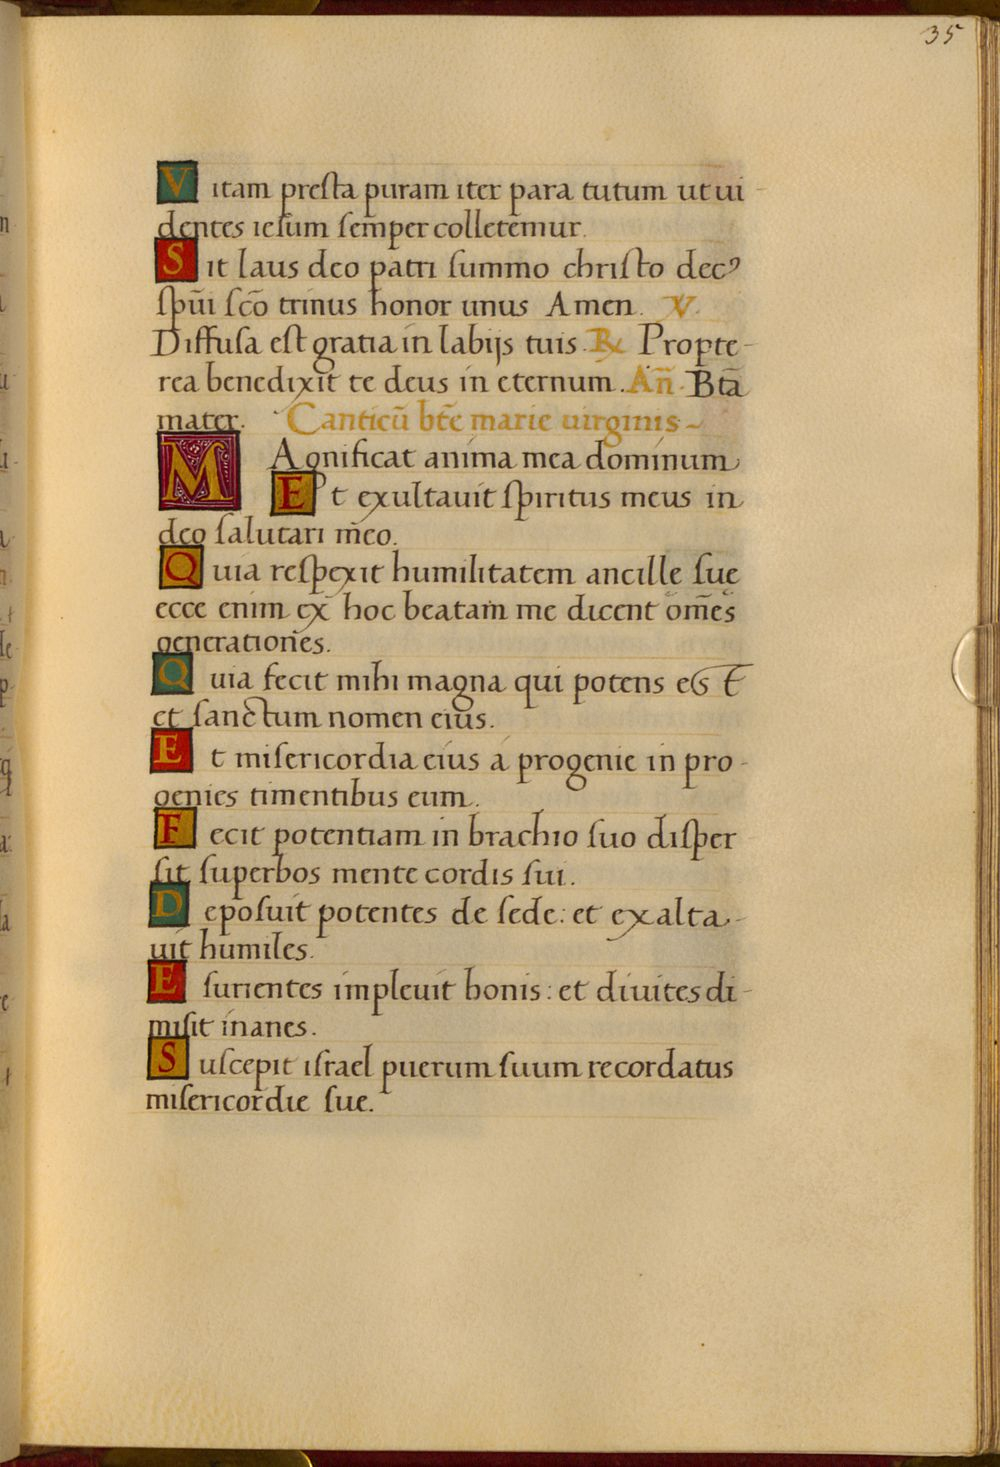 35
Vitam presta puram iter para tutum ut ui-
dentes iesum semper colletemur.
Sit laus deo patri summo christo decꝰ
spūi scō trinus honor unus Amen. V.
Diffusa est gratia in labijs tuis. ℟ Propte-
rea benedixit te deus in eternum. Añ. Btā
mater. Canticū btē marie uirginis~
MAgnificat anima mea dominum
Et exultauit spiritus meus in
deo salutari meo.
Quia respexit humilitatem ancille sue
ecce enim ex hoc beatam me dicent om̄es
generationes.
Quia fecit mihi magna qui potens est
et sanctum nomen eius.
Et misericordia eius a progenie in pro-
genies timentibus eum.
Fecit potentiam in brachio suo disper
sit superbos mente cordis sui.
Deposuit potentes de sede: et exalta-
uit humiles.
Esurientes impleuit bonis: et diuites di-
misit inanes.
Suscepit israel puerum suum recordatus
misericordie sue.